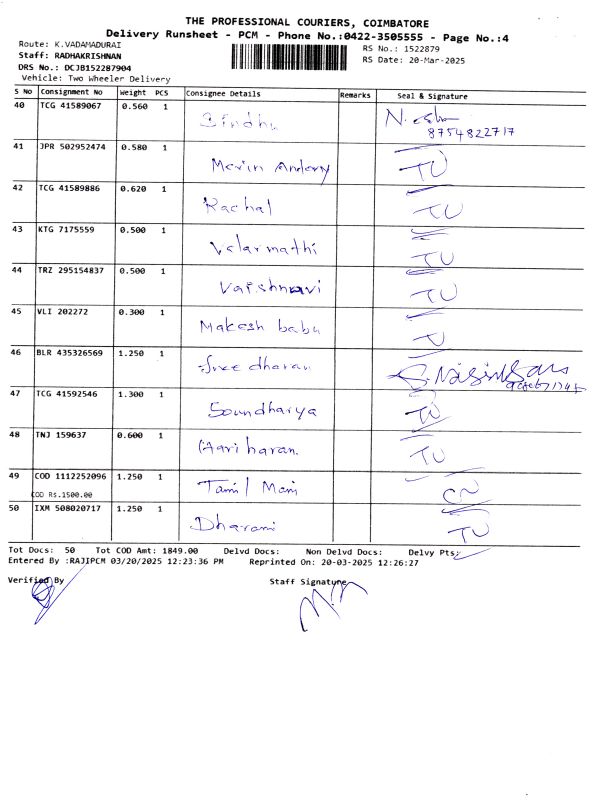 THE PROFESSIONAL COURIERS, COIMBATORE
Delivery Runsheet - PCM - Phone No.:0422-3505555 - Page No.:4
Route: K.VADAMADURAI
RS No.: 1522879
Staff: RADHAKRISHNAN
RS Date: 20-Mar-2025
DRS No.: DCJB152287904
Vehicle: Two Wheeler Delivery
S No Consignment No Weight PCS Consignee Details Remarks Seal & Signature
40 TCG 41589067 0.560 1 Bindhu
8754822717
41 JPR 502952474 0.580 1 Mervin Andery TU
42 TCG 41589886 0.620 1 Rachal TU
43 KTG 7175559 0.500 1 Valarmathi TU
44 TRZ 295154837 0.500 1 Vaishnavi TU
45 VLI 202272 0.300 1 Makesh babu TU
46 BLR 435326569 1.250 1 Sree dharan
47 TCG 41592546 1.300 1 Soundharya TU
48 TNJ 159637 0.600 1 Hari haran. TU
49 COD 1112252096 1.250 1 Tamil Mani CN
COD Rs.1500.00
50 IXM 508020717 1.250 1 Dharani TU
Tot Docs: 50 Tot COD Amt: 1849.00 Delvd Docs: Non Delvd Docs: Delvy Pts:
Entered By :RAJIPCM 03/20/2025 12:23:36 PM Reprinted On: 20-03-2025 12:26:27
Verified By Staff Signature